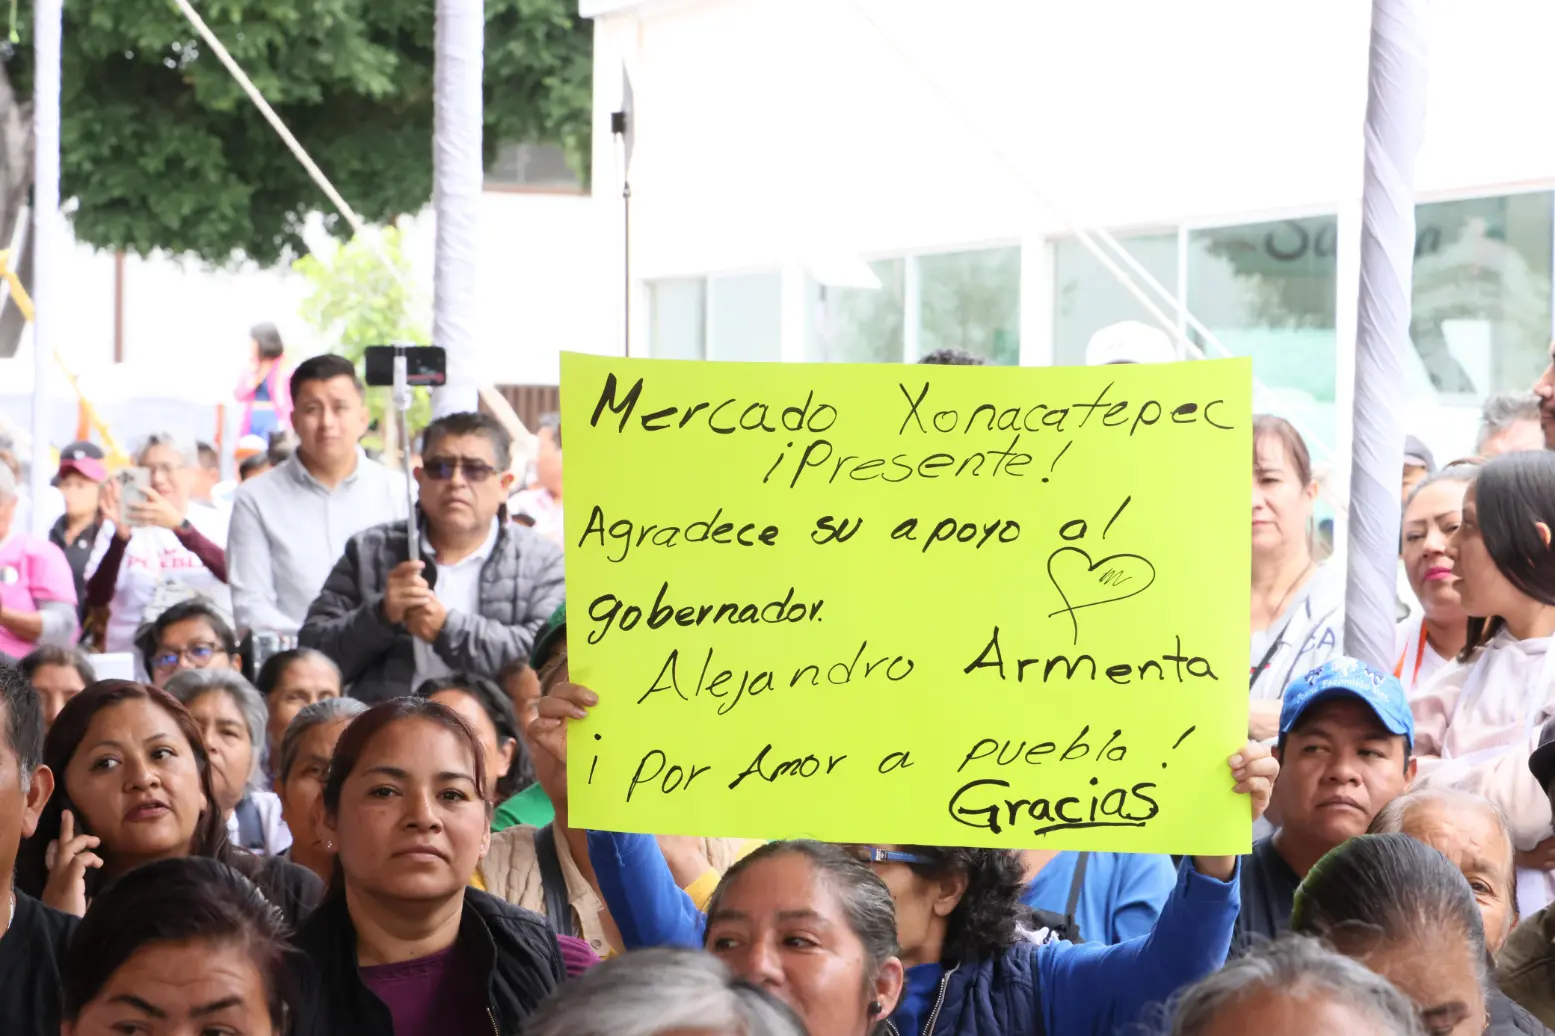 Mercado Xonacatepec
¡Presente!
Agradece su apoyo al
gobernador.
Alejandro Armenta
¡Por Amor a puebla!
Gracias